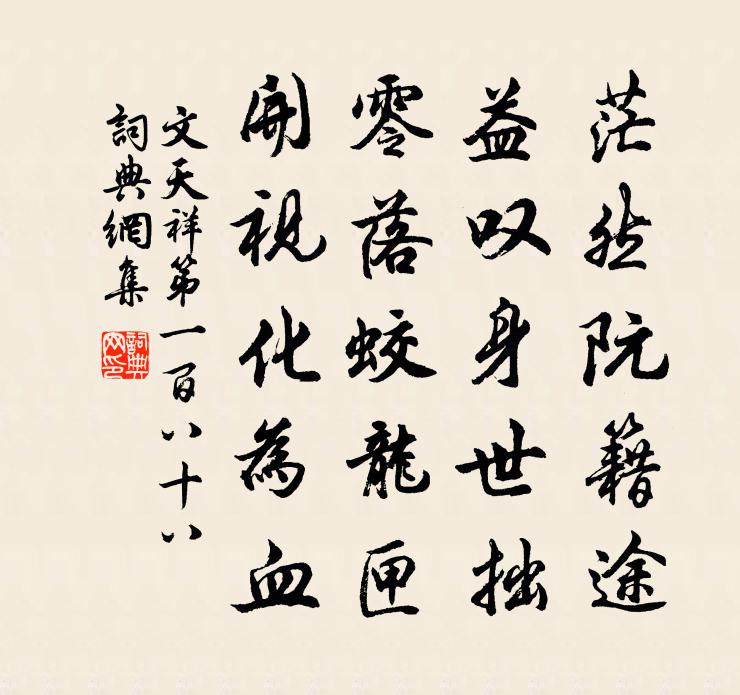 茫然阮籍途
益叹身世拙
零落蛟龍匣
開視化為血
文天祥第一百八十八
詞典網集
詞典网印